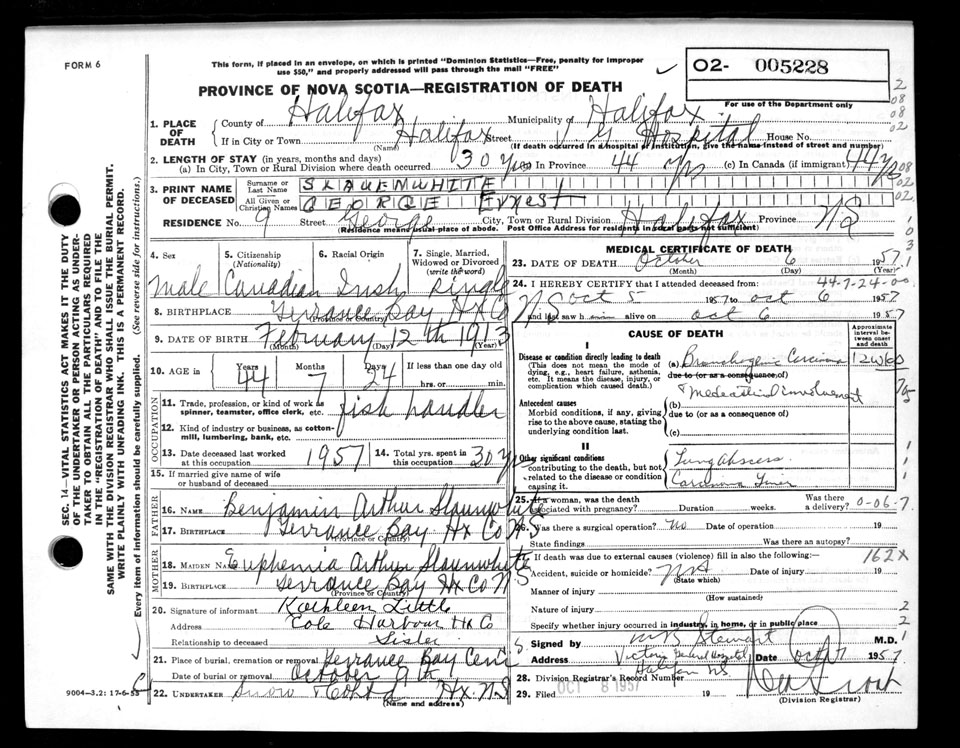 FORM 6
This form, if placed in an envelope, on which is printed "Dominion Statistics—Free, penalty for improper
use $50," and properly addressed will pass through the mail "FREE"
02- 005228
For use of the Department only
PROVINCE OF NOVA SCOTIA—REGISTRATION OF DEATH
1. PLACE OF DEATH County of Halifax Municipality of Halifax
If in City or Town Halifax Street V G Hospital House No.
(Name) (If death occurred in a hospital or institution, give the name instead of street and number)
2. LENGTH OF STAY (in years, months and days)
(a) In City, Town or Rural Division where death occurred 30 yrs (b) In Province 44 yrs (c) In Canada (if immigrant) 44 yrs
3. PRINT NAME OF DECEASED Surname or Last Name SLAUENWHITE
All Given or Christian Names GEORGE Ernest
RESIDENCE No. 9 Street George City, Town or Rural Division Halifax Province NS
(Residence means usual place of abode. Post Office Address for residents in rural parts not sufficient)
4. Sex 5. Citizenship (Nationality) 6. Racial Origin 7. Single, Married, Widowed or Divorced (write the word)
Male Canadian Irish Single
8. BIRTHPLACE Terrance Bay Hx Co NS
(Province or Country)
9. DATE OF BIRTH February 12th 1913
(Month) (Day) (Year)
10. AGE Years 44 Months 7 Days 24 If less than one day old
hrs. or min.
OCCUPATION
11. Trade, profession, or kind of work as spinner, teamster, office clerk, etc. fish handler
12. Kind of industry or business, as cotton-mill, lumbering, bank, etc.
13. Date deceased last worked at this occupation 1957 14. Total yrs. spent in this occupation 30 yrs
15. If married give name of wife or husband of deceased
FATHER
16. Name Benjamin Arthur Slaunwhite
17. Birthplace Terrance Bay Hx Co NS
(Province or Country)
MOTHER
18. Maiden Name Euphemia Arthur Slaunwhite
19. Birthplace Terrance Bay Hx Co NS
(Province or Country)
20. Signature of informant Kathleen Little
Address Cole Harbour Hx Co
Relationship to deceased Sister
21. Place of burial, cremation or removal Terrance Bay Cem
Date of burial or removal October 9th
22. UNDERTAKER Snow & Co Hx. NS
(Name and address)
9004-3.2: 17-6-55
MEDICAL CERTIFICATE OF DEATH
23. DATE OF DEATH October 6 1957
(Month) (Day) (Year)
24. I HEREBY CERTIFY that I attended deceased from: 44-7-24-00
Oct 5 1957 to Oct 6 1957
and last saw h im alive on Oct 6 1957
CAUSE OF DEATH
Approximate interval between onset and death
I
Disease or condition directly leading to death
(This does not mean the mode of dying, e.g., heart failure, asthenia, etc. It means the disease, injury, or complication which caused death.)
(a) Bronchogenic Carcinoma
due to (or as a consequence of)
Antecedent causes
Morbid conditions, if any, giving rise to the above cause, stating the underlying condition last.
(b) Mediastinal involvement
due to (or as a consequence of)
(c)
II
Other significant conditions contributing to the death, but not related to the disease or condition causing it.
Lung Abscess
Carcinoma Liver
25. If a woman, was the death associated with pregnancy? Duration weeks. Was there a delivery? 0-06-7
26. Was there a surgical operation? No Date of operation 19
State findings Was there an autopsy?
27. If death was due to external causes (violence) fill in also the following:— 162X
Accident, suicide or homicide? Date of injury 19
(State which)
Manner of injury
(How sustained)
Nature of injury
Specify whether injury occurred in industry, in home, or in public place
Signed by Stewart M.D.
Address Victoria General Hospital Halifax NS Date Oct 7 1957
28. Division Registrar's Record Number
29. Filed OCT 8 1957 19
(Division Registrar)
SEC. 14—VITAL STATISTICS ACT MAKES IT THE DUTY
OF THE UNDERTAKER OR PERSON ACTING AS UNDER-
TAKER TO OBTAIN ALL THE PARTICULARS REQUIRED
IN THE "REGISTRATION OF DEATH" AND TO FILE THE
SAME WITH THE DIVISION REGISTRAR WHO SHALL ISSUE THE BURIAL PERMIT.
WRITE PLAINLY WITH UNFADING INK. THIS IS A PERMANENT RECORD.
Every item of information should be carefully supplied. (See reverse side for instructions.)